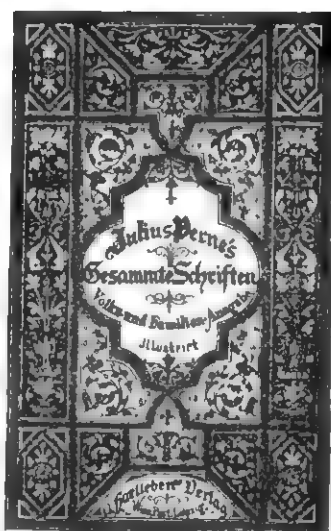 Julius Verne's
Gesammte Schriften
Volks und Familien-Ausgabe
Illustrirt
Hartleben's Verlag
Wien Pest Leipzig